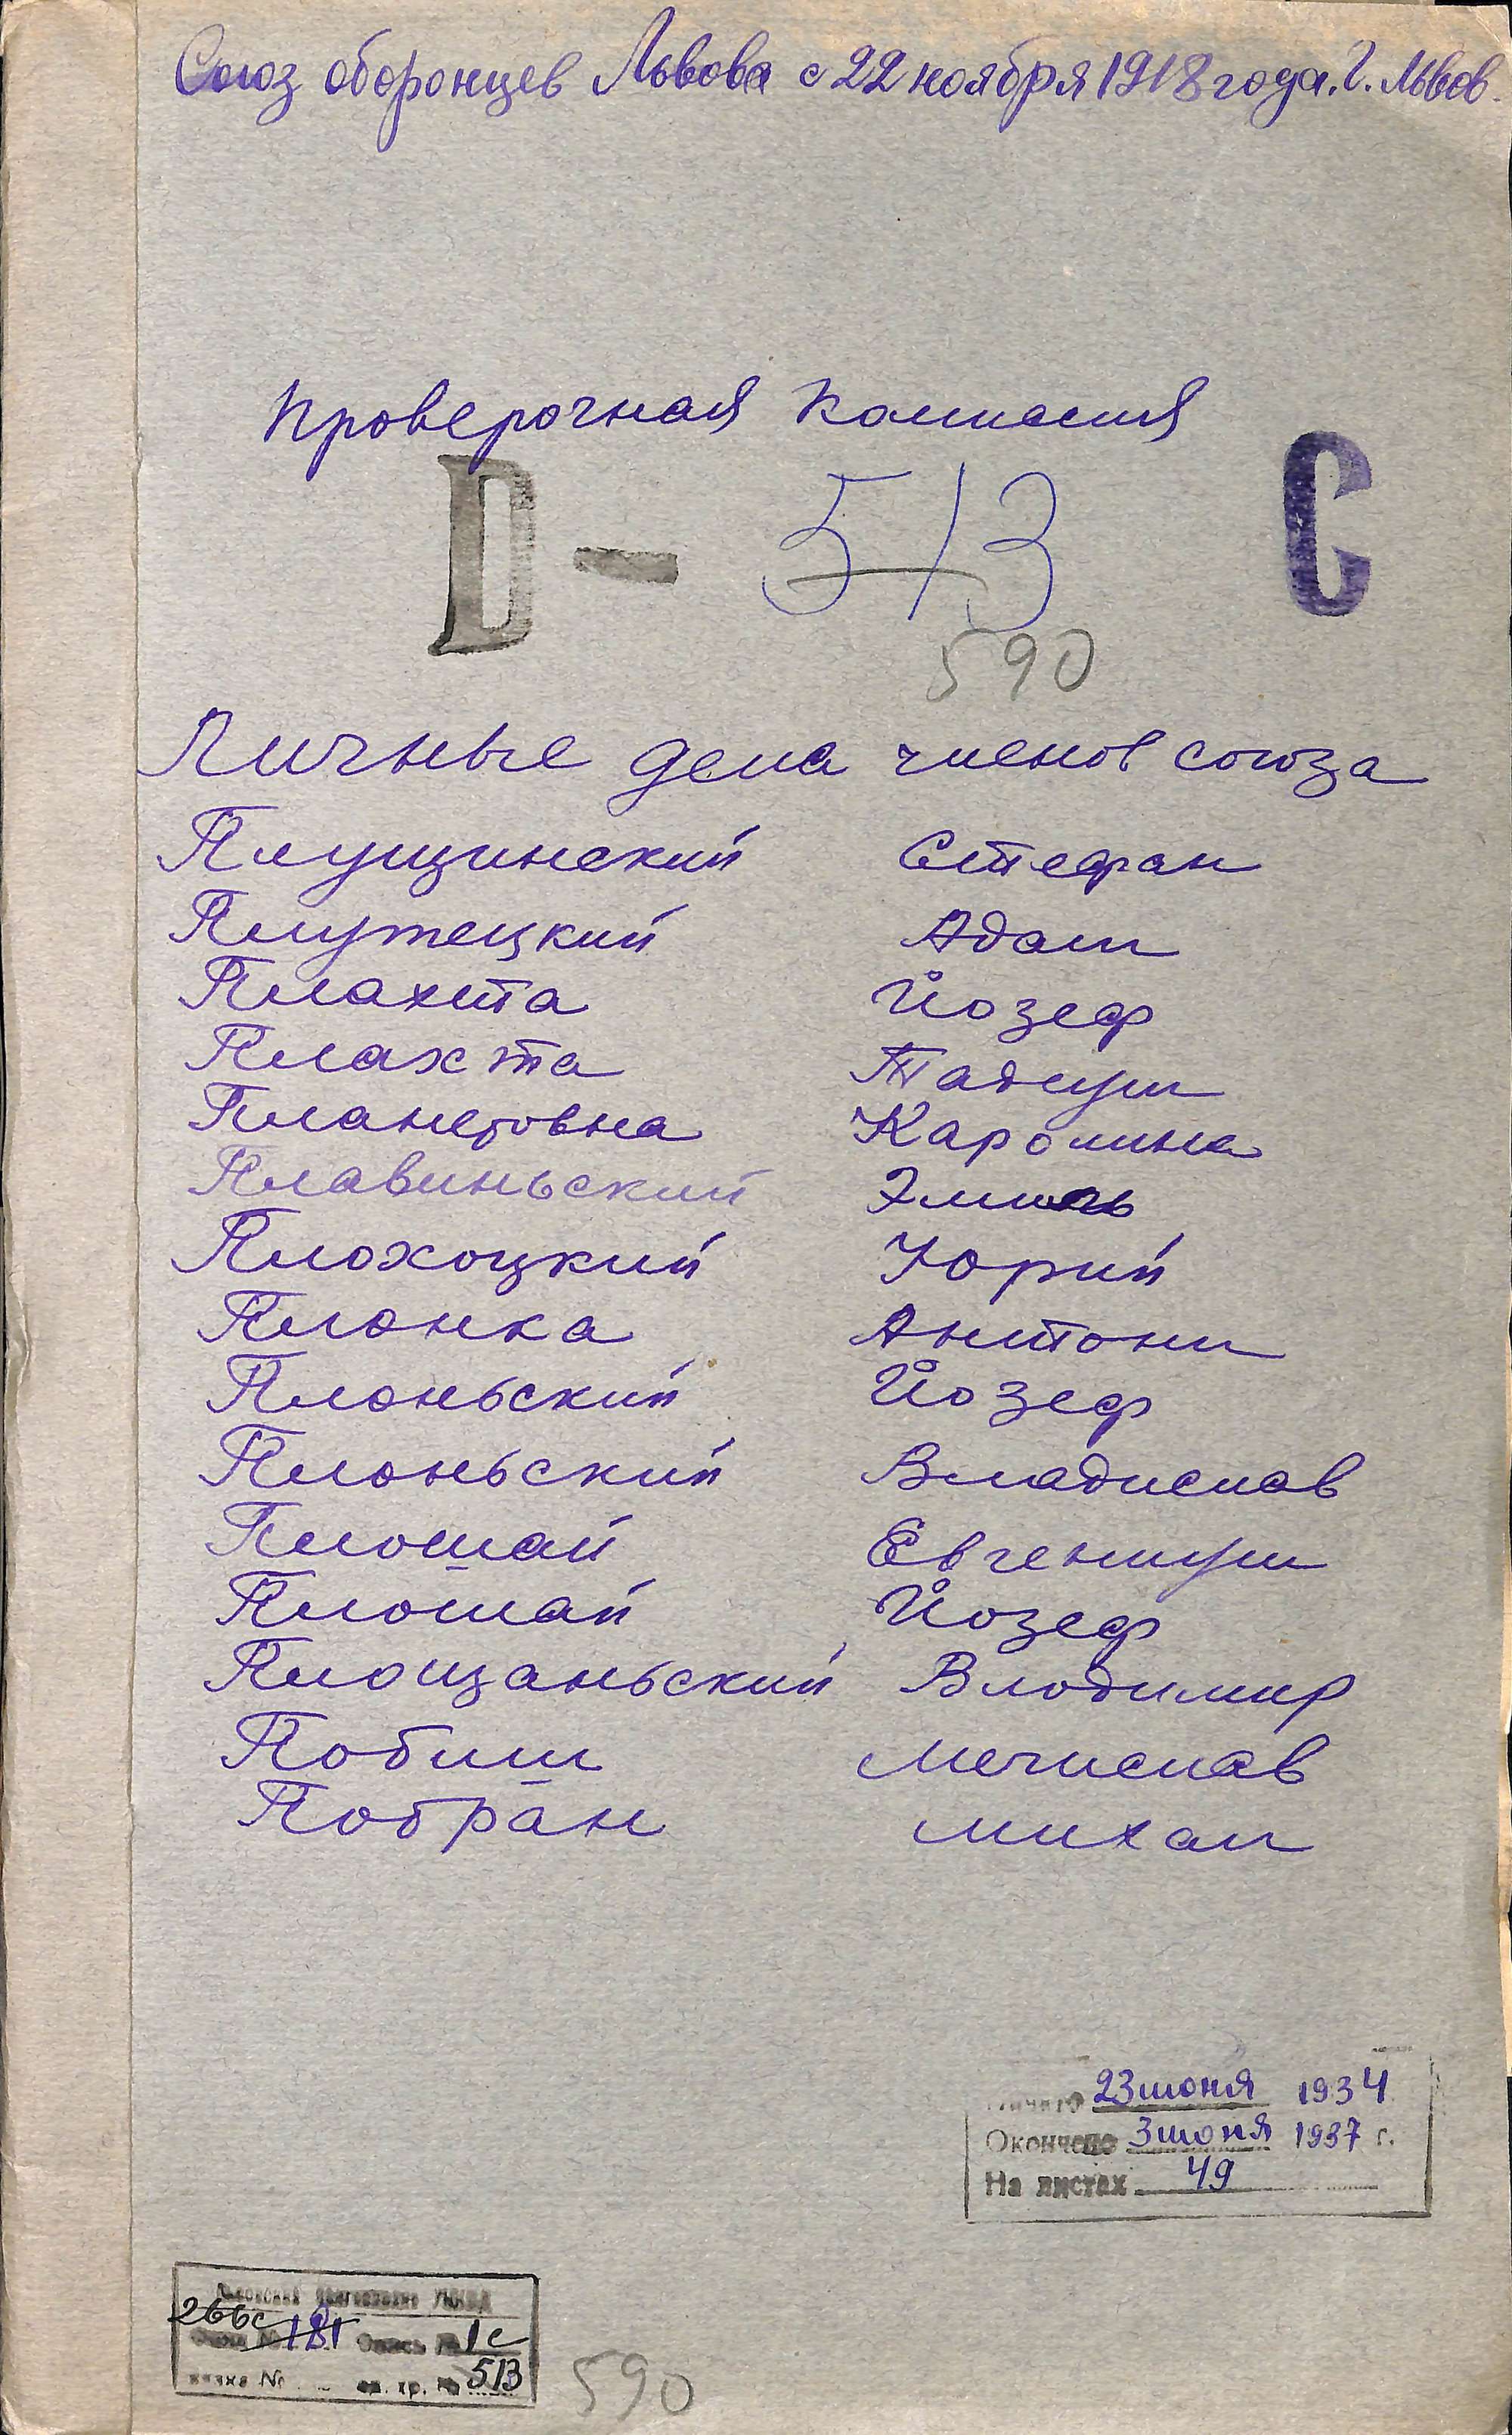 Союз оборонцев Львова с 22 ноября 1918 года. Г. Львов.
Проверочная комиссия
D - 513 C
590
Личные дела членов союза
Плущинский Стефан
Плужецкий Адам
Плахта Йозеф
Плахта Тадеуш
Планетовна Каролина
Плавиньский Эмиль
Плохоцкий Юрий
Плонка Антони
Плоньский Йозеф
Плоньский Владислав
Плошай Евгениуш
Плошай Йозеф
Площаньский Влодимир
Побиш Мечислав
Побран Михал
Начато 23 июня 1934
Окончено 3 июня 1937 г.
На листах 49
266с
181 Опись № 1с
№ ед. хр. № 513
590